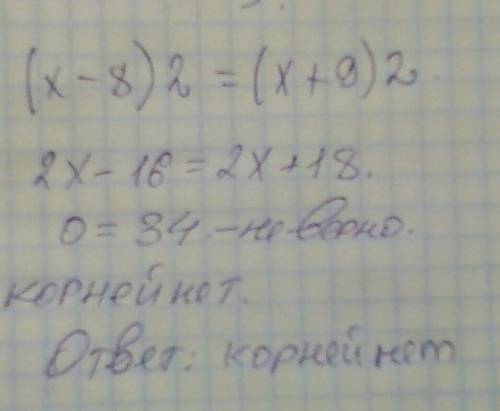 (х - 8) 2 = (х + 9) 2.
2х - 16 = 2х + 18.
0 = 34. - не верно.
корней нет.
Ответ: корней нет